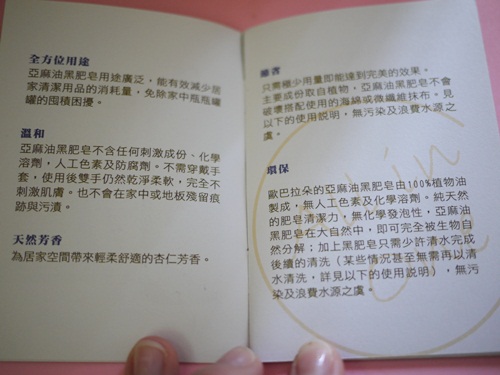 全方位用途
亞麻油黑肥皂用途廣泛，能有效減少居
家清潔用品的消耗量，免除家中瓶瓶罐
罐的囤積困擾。
溫和
亞麻油黑肥皂不含任何刺激成份、化學
溶劑，人工色素及防腐劑。不需穿戴手
套，使用後雙手仍然乾淨柔軟，完全不
刺激肌膚。也不會在家中或地板殘留痕
跡與污漬。
天然芳香
為居家空間帶來輕柔舒適的杏仁芳香。
節省
只需極少用量即能達到完美的效果。
主要成份取自植物，亞麻油黑肥皂不會
破壞搭配使用的海綿或微纖維抹布。見
以下的使用說明，無污染及浪費水源之
虞。
環保
歐巴拉朵的亞麻油黑肥皂由100%植物油
製成，無人工色素及化學溶劑。純天然
的肥皂清潔力，無化學發泡性，亞麻油
黑肥皂在大自然中，即可完全被生物自
然分解；加上黑肥皂只需少許清水完成
後續的清洗（某些情況甚至無需再以清
水清洗，詳見以下的使用說明），無污
染及浪費水源之虞。